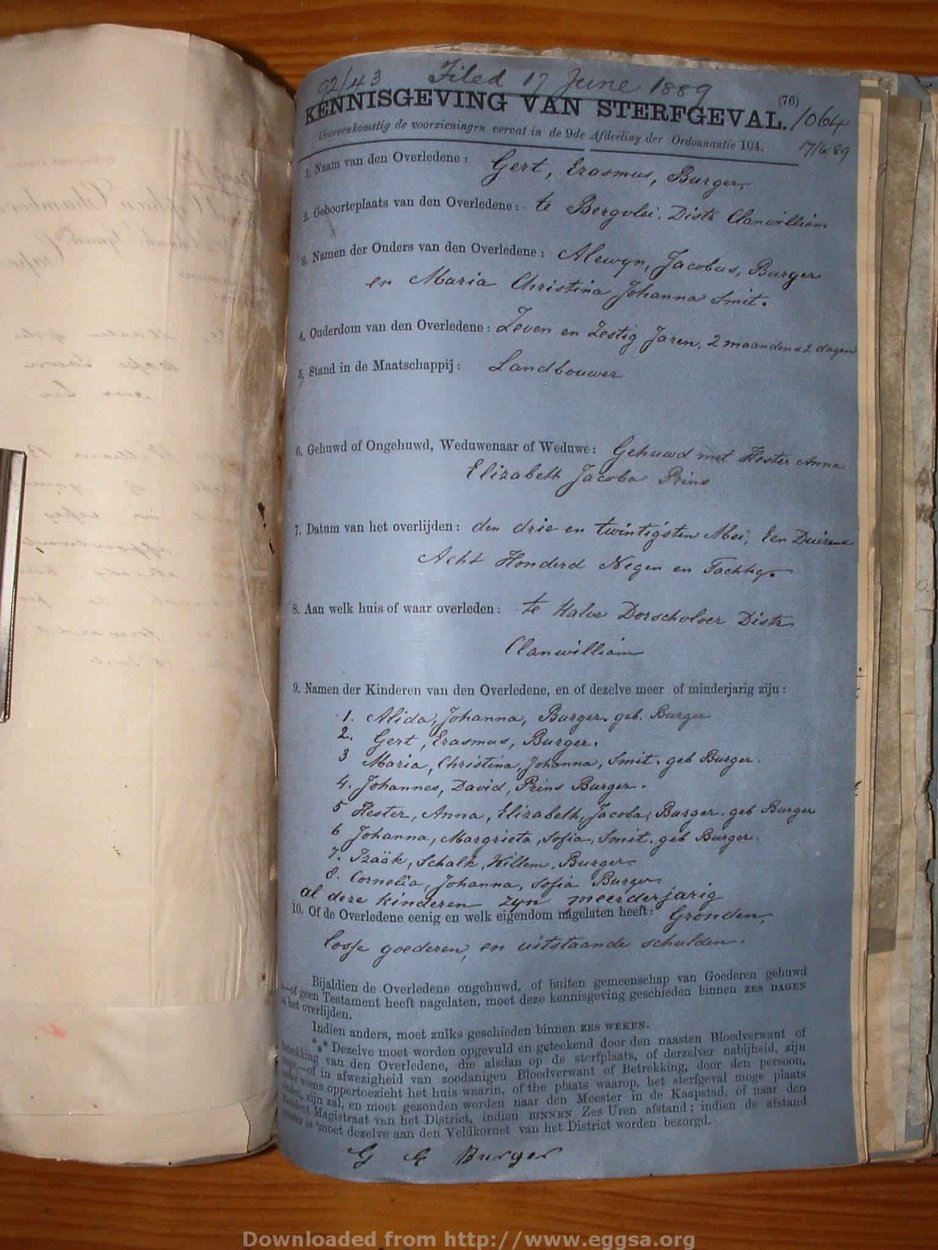 92/43 Filed 17 June 1889
(76)
KENNISGEVING VAN STERFGEVAL. 1064
Overeenkomstig de voorzieningen vervat in de 9de Afdeeling der Ordonnantie 104. 17/6/89
1. Naam van den Overledene: Gert, Erasmus, Burger.
2. Geboorteplaats van den Overledene: te Bergvlei, Distr Clanwilliam
3. Namen der Ouders van den Overledene: Alewyn, Jacobus, Burger
en Maria Christina Johanna Smit.
4. Ouderdom van den Overledene: Zeven en Zestig Jaren, 2 maanden & 2 dagen
5. Stand in de Maatschappij: Landbouwer
6. Gehuwd of Ongehuwd, Weduwenaar of Weduwe: Gehuwd met Hester Anna
Elizabeth Jacoba Prins
7. Datum van het overlijden: den drie en twintigsten Mei, Een Duizend
Acht Honderd Negen en Tachtig.
8. Aan welk huis of waar overleden: te Halve Dorschvloer Distr
Clanwilliam
9. Namen der Kinderen van den Overledene, en of dezelve meer of minderjarig zijn:
1. Alida, Johanna, Burger, geb. Burger
2. Gert, Erasmus, Burger.
3 Maria, Christina, Johanna, Smit, geb Burger.
4. Johannes, David, Prins Burger.
5 Hester, Anna, Elizabeth, Jacoba, Burger. geb Burger
6 Johanna, Margrieta, Sofia, Smit, geb Burger.
7. Izaäk, Schalk, Willem, Burger.
8. Cornelia, Johanna, Sofia Burger
al deze kinderen zyn meerderjarig
10. Of de Overledene eenig en welk eigendom nagelaten heeft: Gronden,
losse goederen, en uitstaande schulden.
Bijaldien de Overledene ongehuwd, of buiten gemeenschap van Goederen gehuwd
—of geen Testament heeft nagelaten, moet deze kennisgeving geschieden binnen ZES DAGEN
het overlijden.
Indien anders, moet zulks geschieden binnen ZES WEKEN.
*** Dezelve moet worden opgevuld en geteekend door den naasten Bloedverwant of
Betrekking van den Overledene, die alsdan op de sterfplaats, of derzelver nabijheid, zijn
—of in afwezigheid van zoodanigen Bloedverwant of Betrekking, door den persoon,
onder wiens oppertoezicht het huis waarin, of the plaats waarop, het sterfgeval moge plaats
zijn zal, en moet gezonden worden naar den Meester in de Kaapstad, of naar den
Resident Magistraat van het District, indien BINNEN Zes Uren afstand; indien de afstand
is moet dezelve aan den Veldkornet van het District worden bezorgd.
G E Burger
Downloaded from http://www.eggsa.org